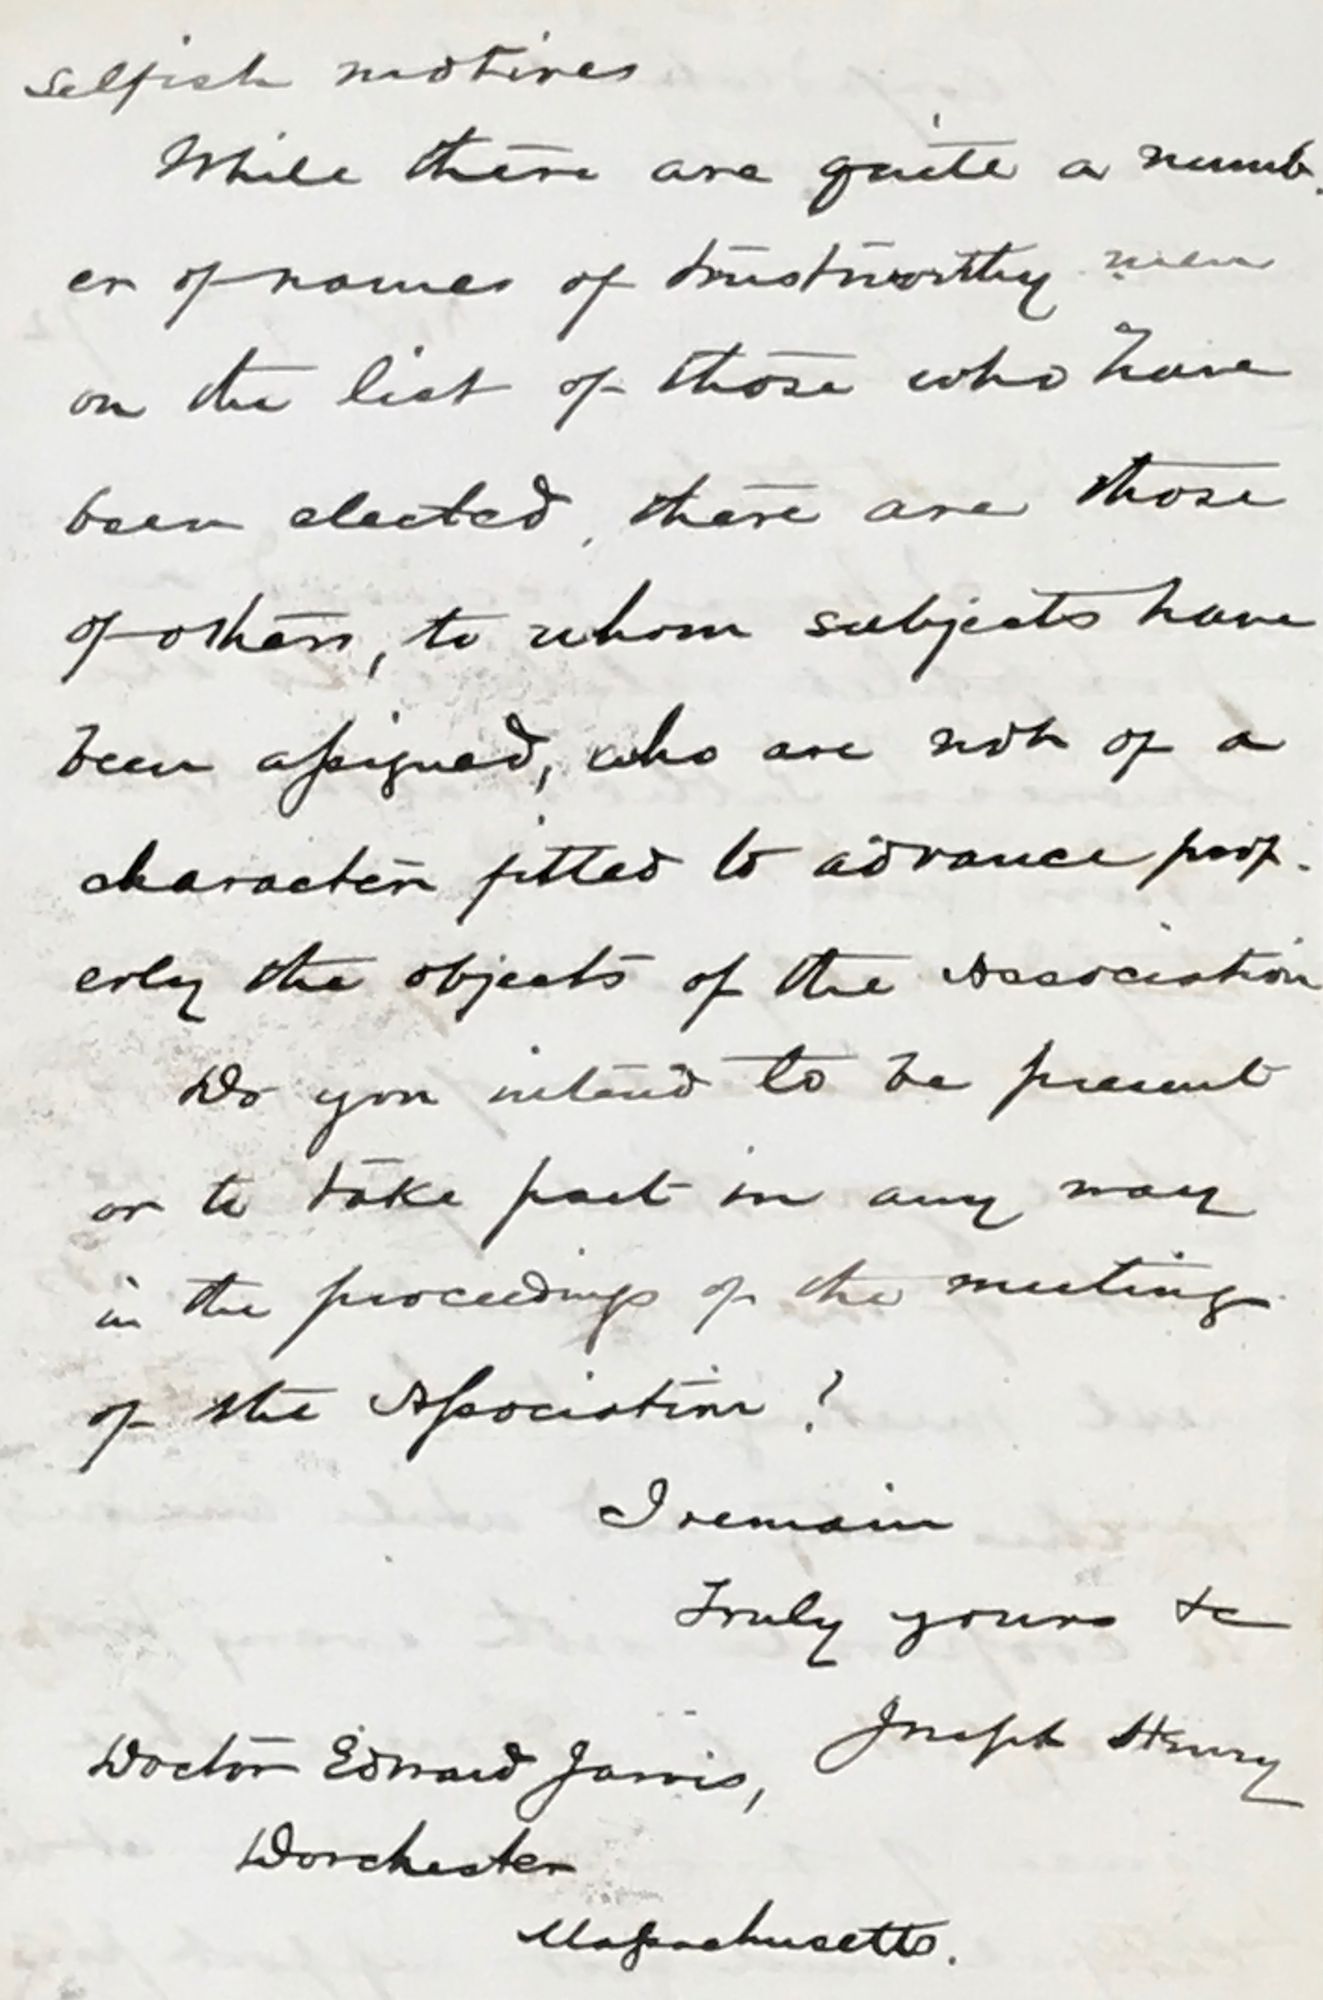 selfish motives
While there are quite a numb-
er of names of trustworthy men
on the list of those who have
been elected, there are those
of others, to whom subjects have
been assigned, who are not of a
character fitted to advance prop-
erly the objects of the Association
Do you intend to be present
or to take part in any way
in the proceedings of the meeting
of the Association?
I remain
Truly yours &c
Joseph Henry
Doctor Edward Jarvis,
Dorchester
Massachusetts.